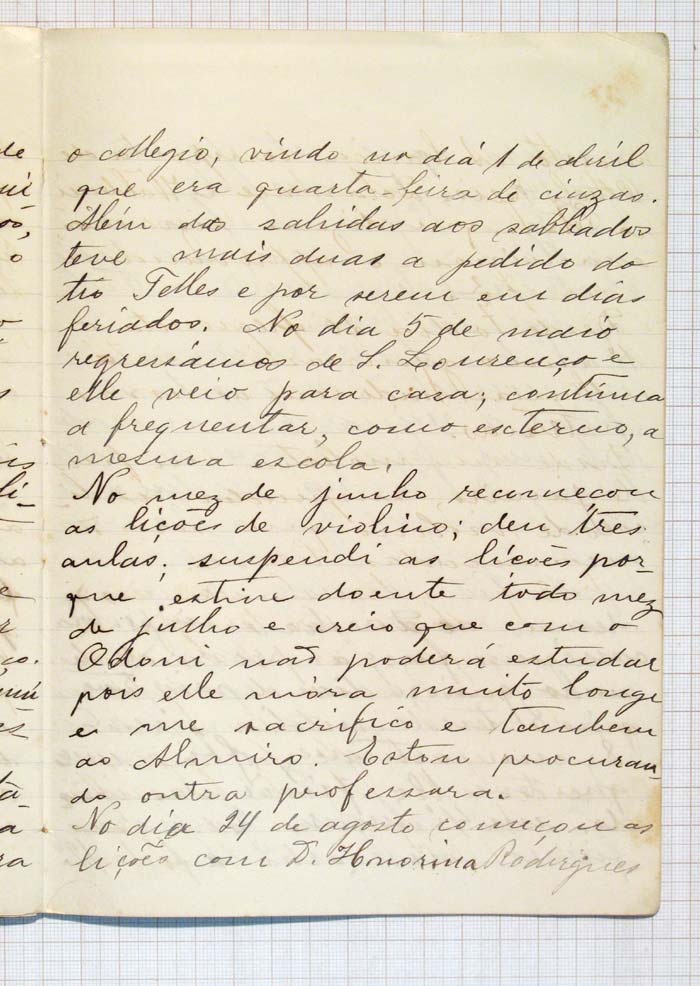 o collegio, vindo no dia 1 de abril
que era quarta-feira de cinzas.
Além das sahidas aos sabbados
teve mais duas a pedido do
tio Telles e por serem em dias
feriados. No dia 5 de maio
regressámos de S. Lourenço e
elle veio para casa; contínua
a frequentar, como externo, a
mesma escola.
No mez de junho recomeçou
as lições de violino; deu tres
aulas; suspendi as licões por-
que estive doente todo mez
de julho e creio que com o
Odoni não poderá estudar
pois elle móra muito longe
e me sacrifico e tambem
ao Almiro. Estou procuran-
do outra professora.
No dia 24 de agosto começou as
lições com D. Honorina Rodrigues